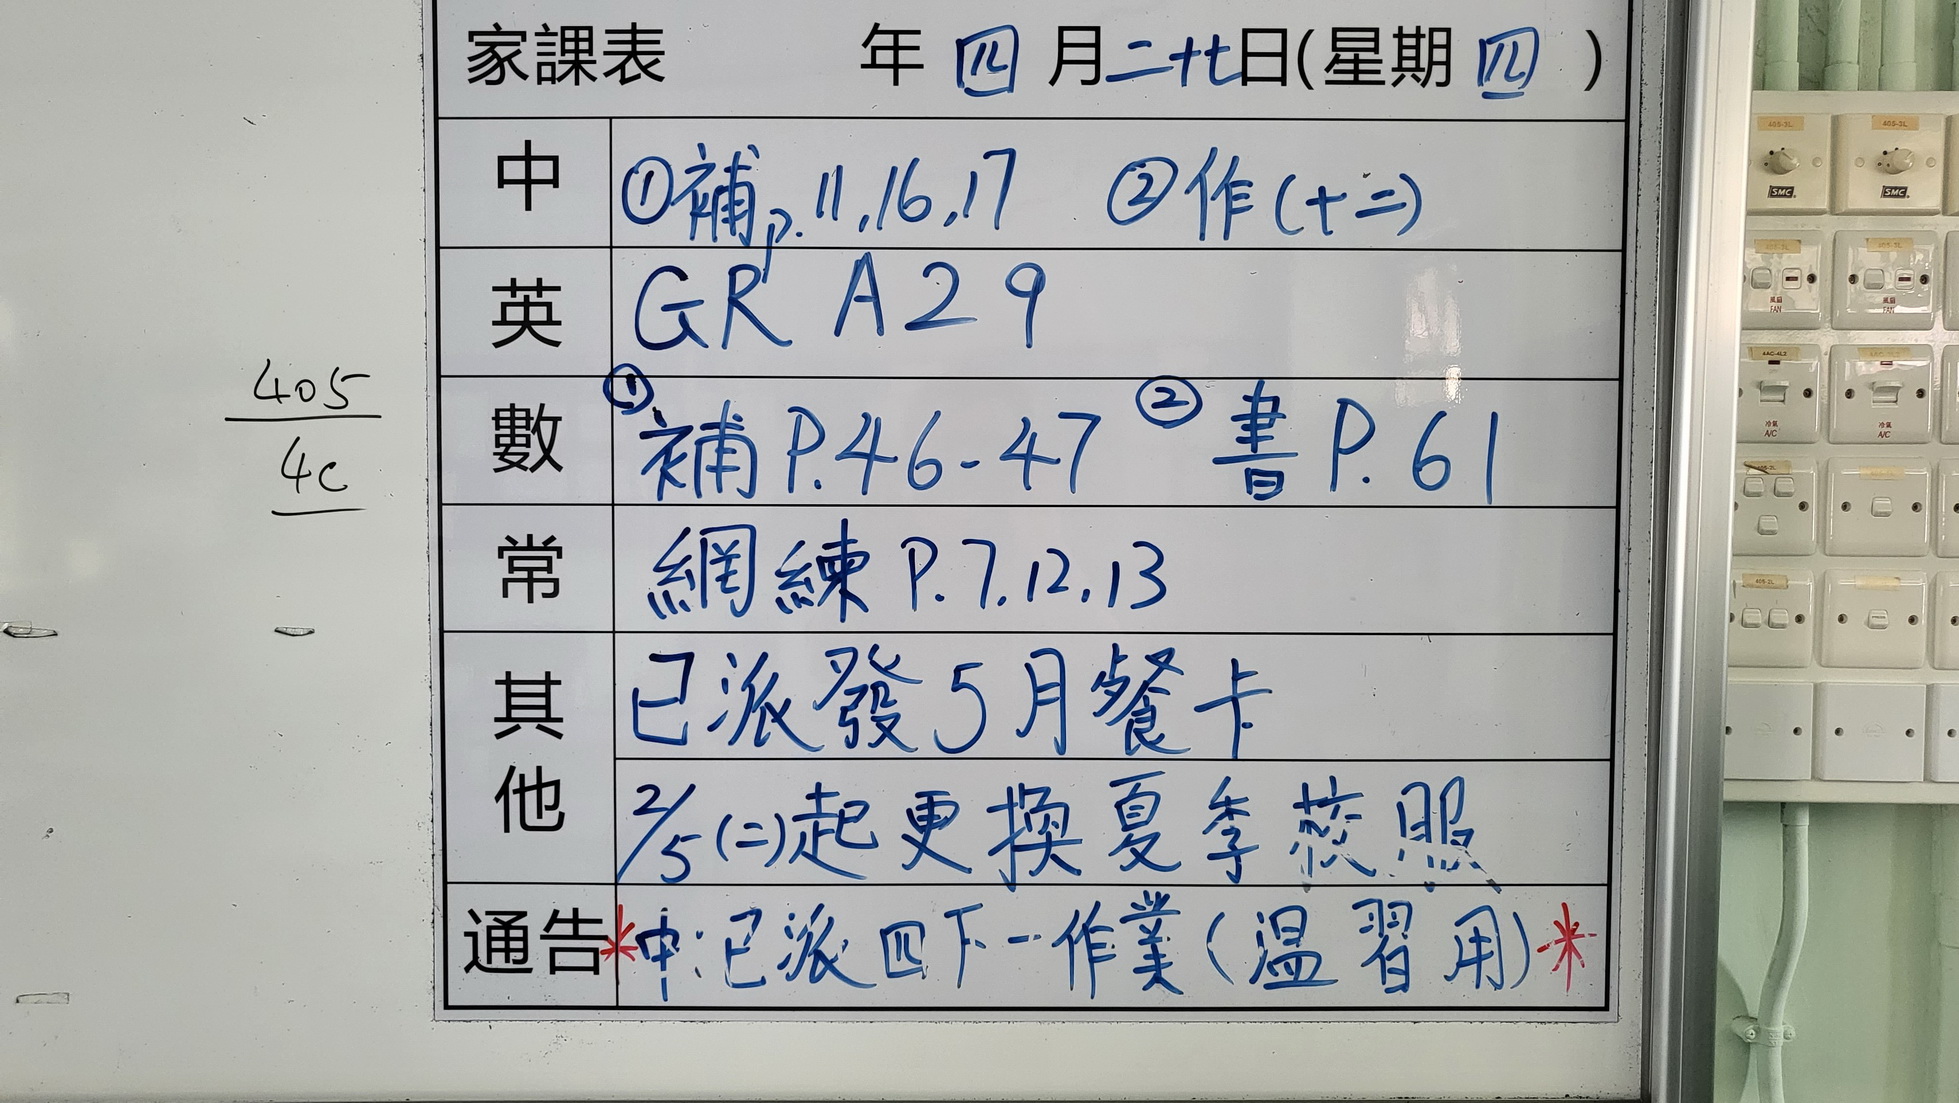 家課表 年 四 月 二十七日(星期 四 )
中 ①補p.11,16,17 ②作(十二)
英 GR A29
數 ①補 P.46-47 ② 書 P.61
常 網練 P.7,12,13
其他 已派發5月餐卡
2/5(二)起更換夏季校服
通告 *中:已派四下一作業(温習用)*
405
4C
405-3L
405-3L
SMC
SMC
風扇
FAN
風扇
FAN
冷氣
A/C
冷氣
A/C
405-2L